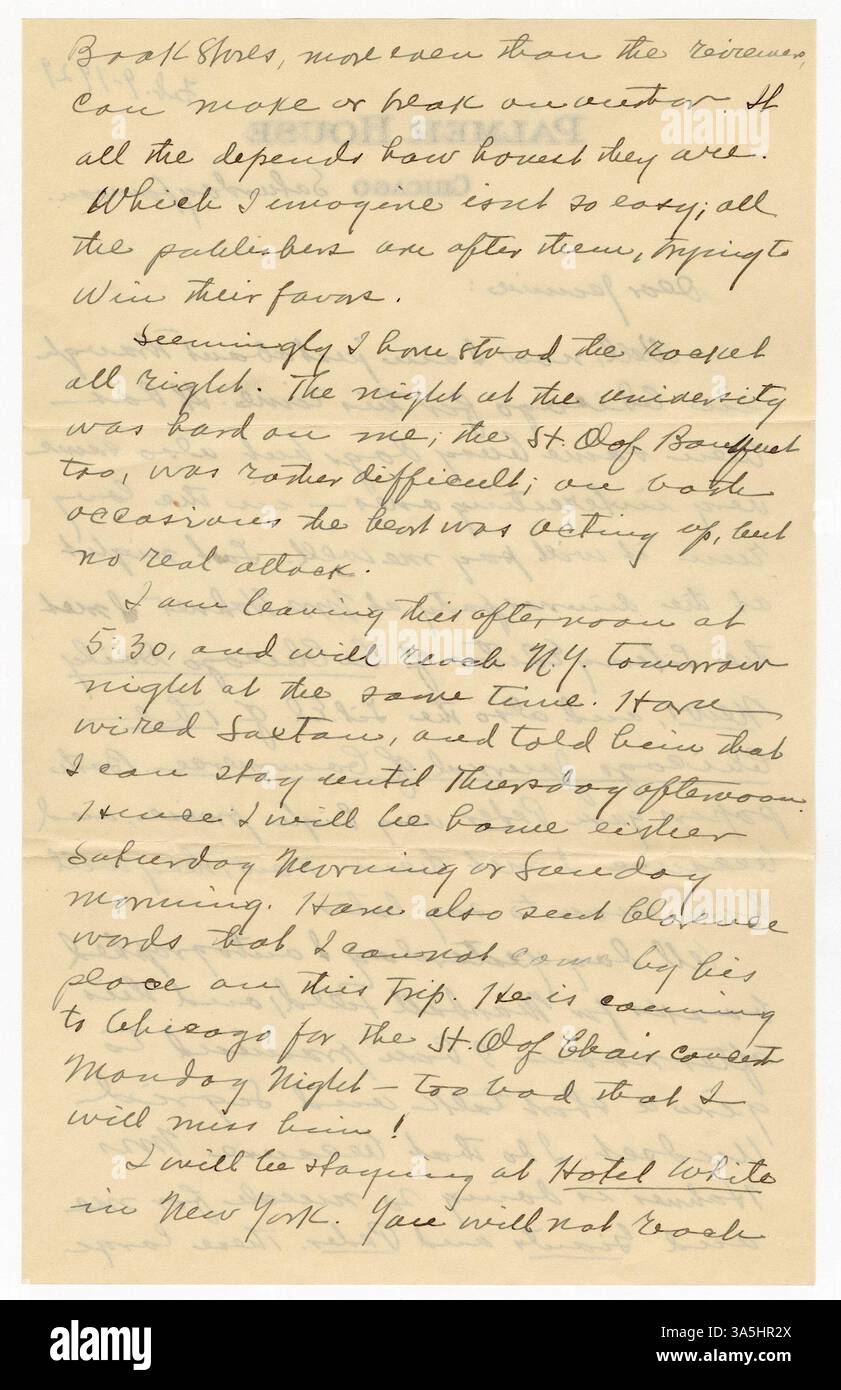 Book Stores, more even than the reviewers,
can make or break an author. It
all the depends how honest they are.
Which I imagine isnt so easy; all
the publishers are after them, trying to
win their favors.
Seemingly I have stood the racket
all right. The night at the university
was hard on me; the St. Olof Banquet
too, was rather difficult; on both
occasions the heart was acting up, but
no real attack.
I am leaving this afternoon at
5:30, and will reach N.Y. tomorrow
night at the same time. Have
wired Saxton, and told him that
I can stay until Thursday afternoon.
Hence I will be home either
Saturday Morning or Sunday
morning. Have also sent Clarence
words that I cannot come by his
place on this trip. He is coming
to Chicago for the St. Olof Choir concert
Monday Night – too bad that I
will miss him!
I will be staying at Hotel White
in New York. You will not reach
PALMER HOUSE
CHICAGO
alamy
alamy
alamy
Image ID: 3A5HR2X
www.alamy.com